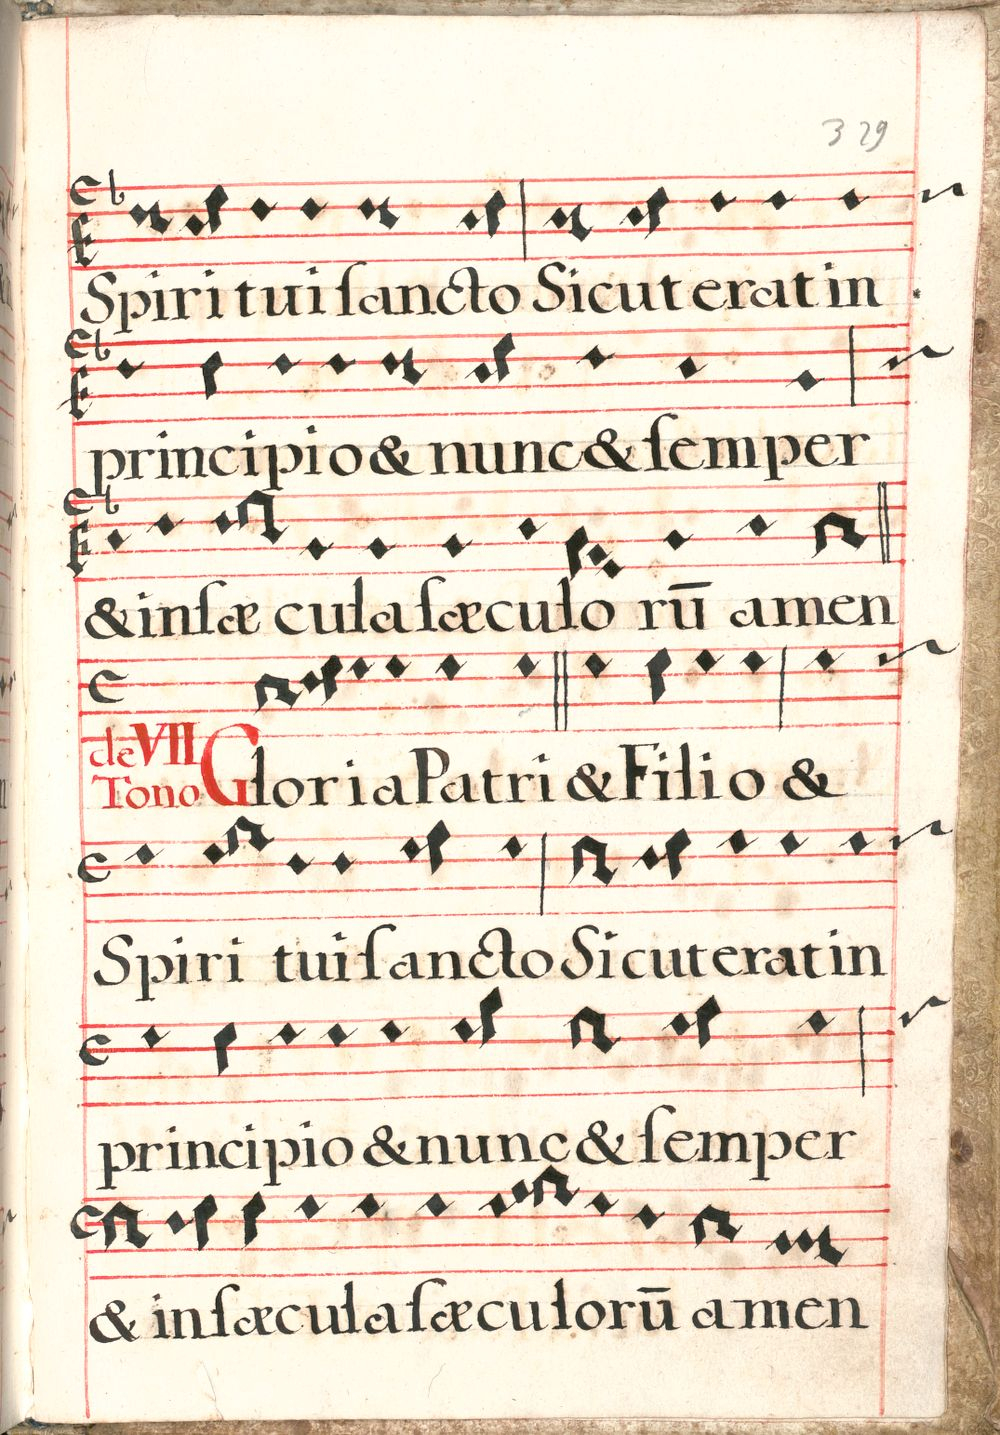 329
Spiritui sancto Sicut erat in
principio & nunc & semper
& in sæcula sæculorū amen
de VII
Tono Gloria Patri & Filio &
Spiritui sancto Sicut erat in
principio & nunc & semper
& in sæcula sæculorū amen